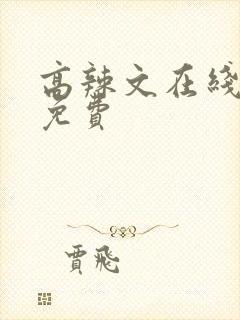 高辣文在线
免費
賈飛